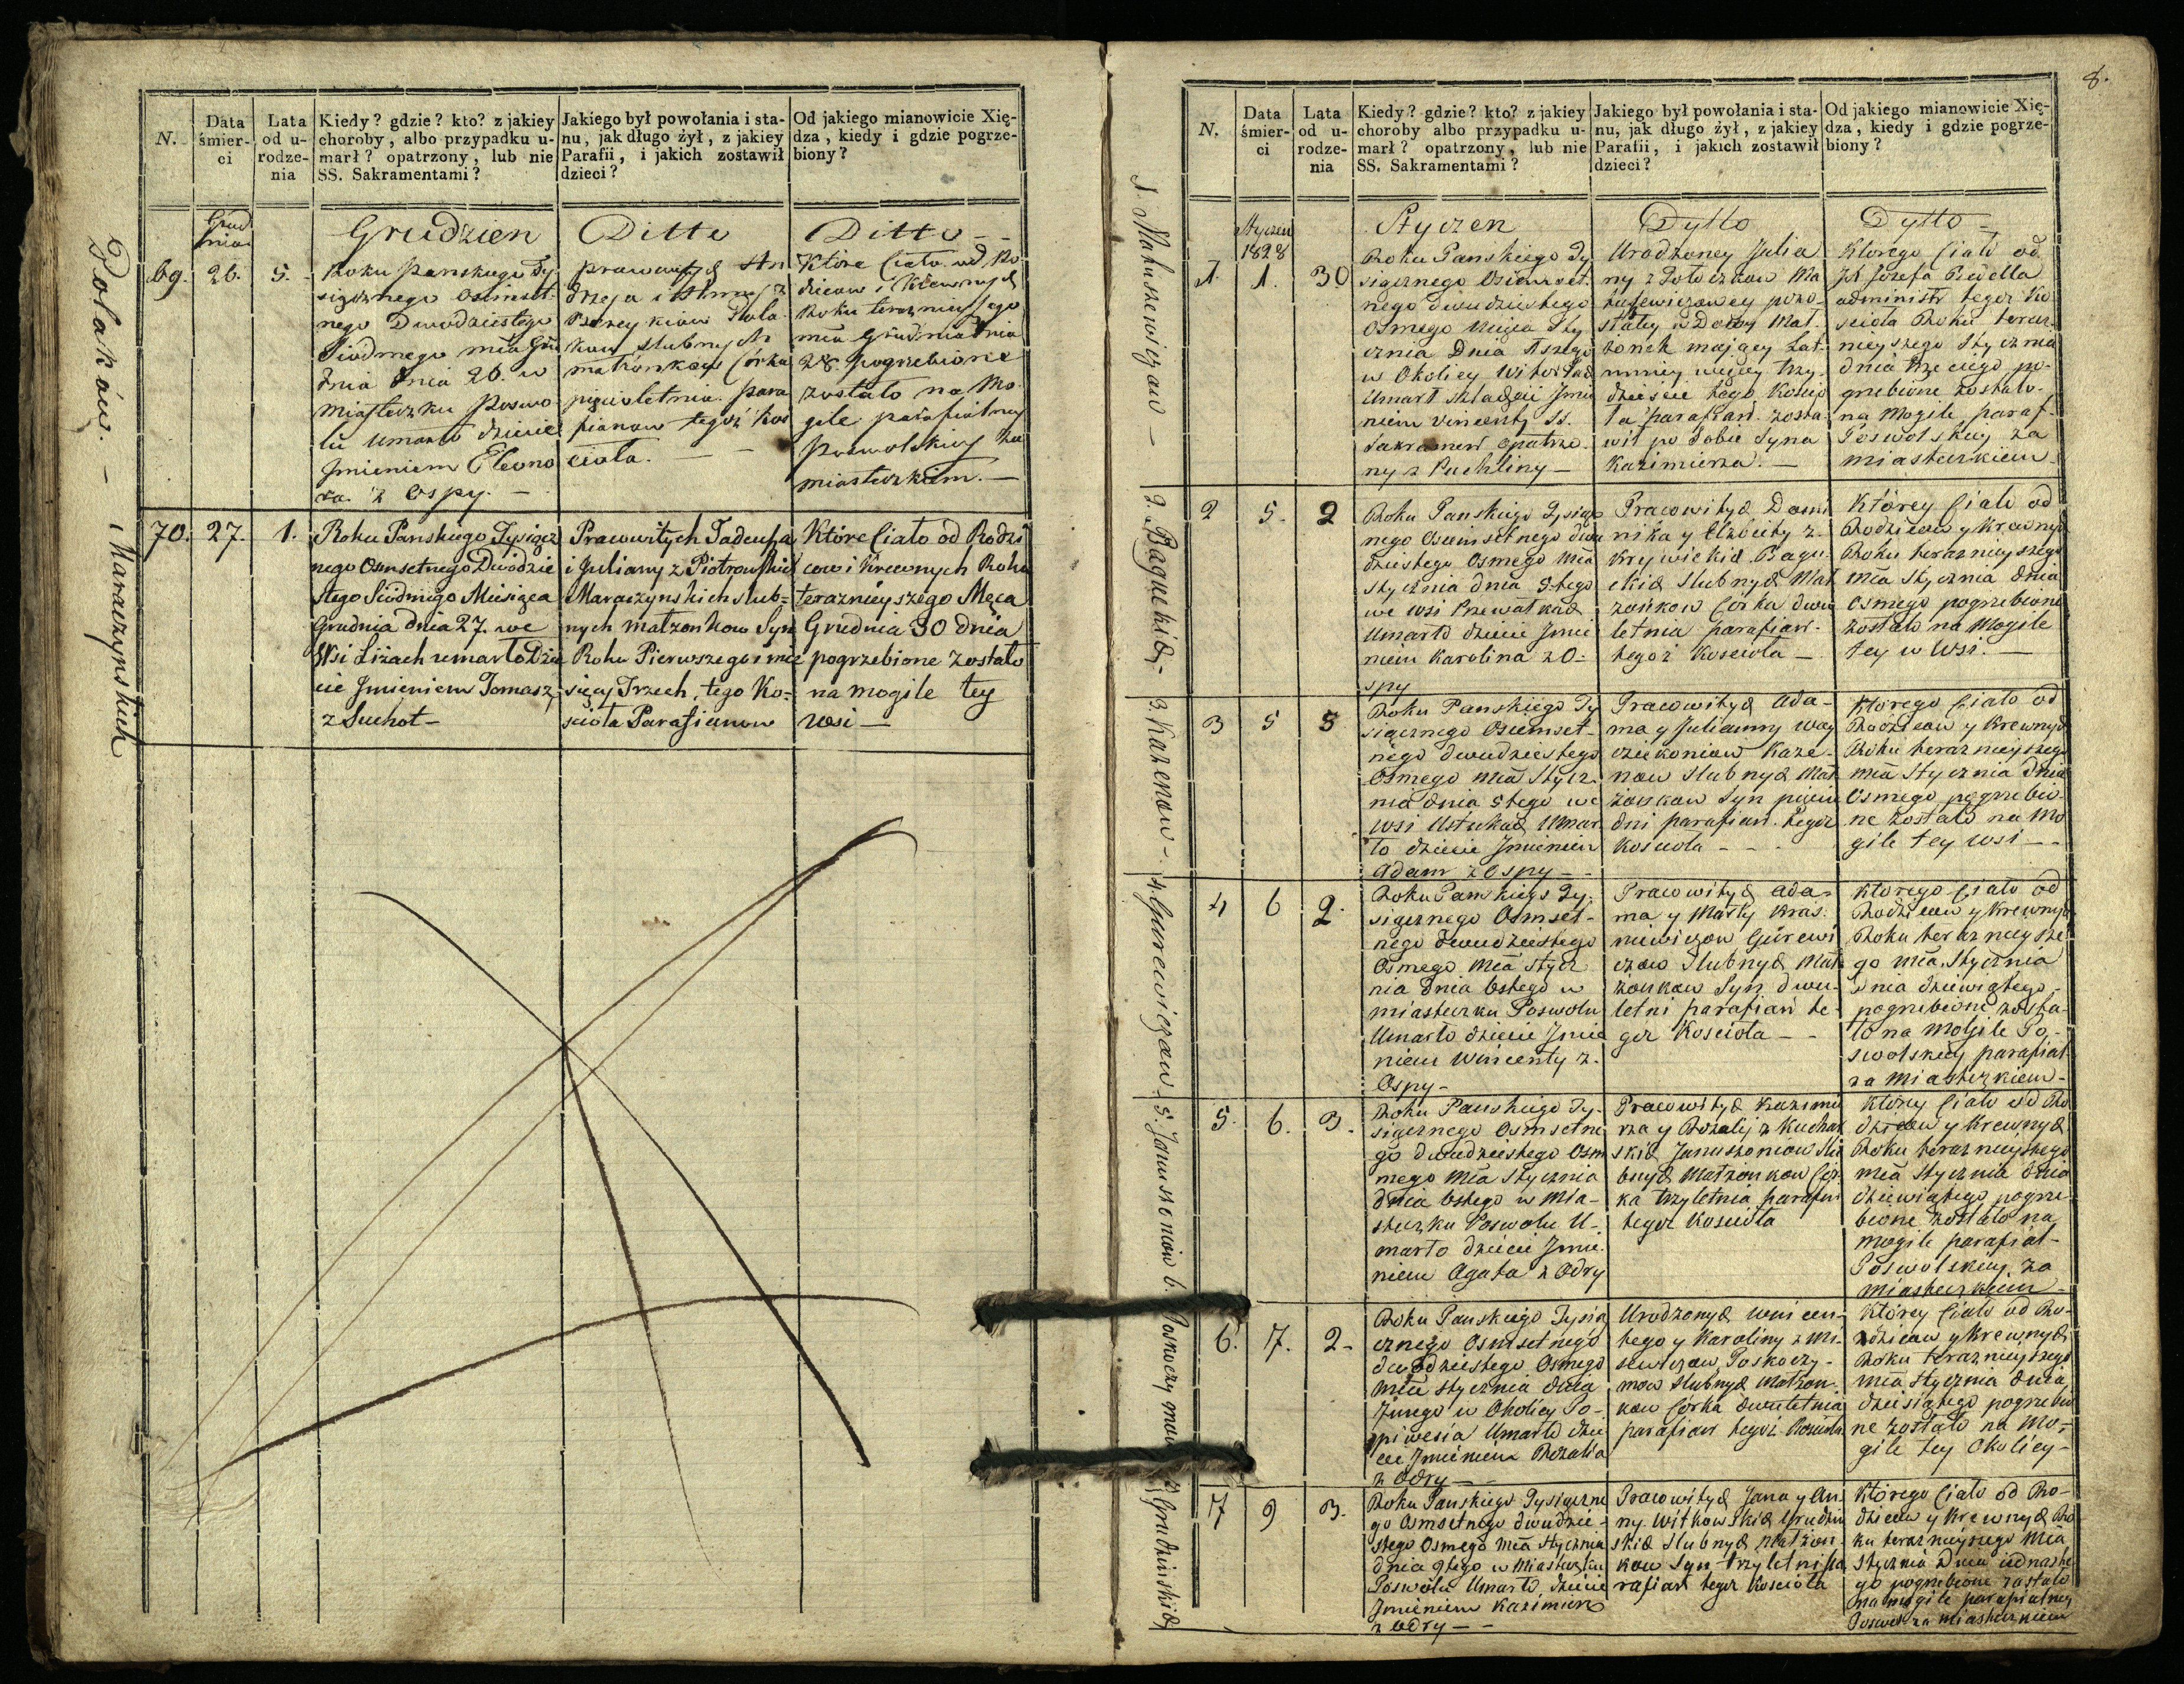 N.
Data śmier-ci
Lata od u-rodze-nia
Kiedy? gdzie? kto? z jakiey
choroby, albo przypadku u-
marł? opatrzony, lub nie
SS. Sakramentami?
Jakiego był powołania i sta-
nu, jak długo żył, z jakiey
Parafii, i jakich zostawił
dzieci?
Od jakiego mianowicie Xię-
dza, kiedy i gdzie pogrze-
biony?
Polakow. —
Grud
nia
69. 26. 5.
Grudzien
Roku Panskiego Ty
siącznego Osimset
nego Dwódziestego
Siódmego mca Gru
dnia dnia 26. w
Miasteczku Poswo
lu umarło dziecie
Jmieniem Eleono
ra z Ospy. —
Ditto
Pracowitych An
drzeja i
Pola
kow slubnych
małżonkow Córka
pięcioletnia para
fianow tegoż Kos
cioła. —
Ditto
Które Ciało od Ro
dzicow i Krewnych
Roku teraznieyszego
mca Grudnia dnia
28. pogrzebione
zostało na Mo
gile parafialney
Poswolskiey za
miasteczkiem. —
Maraczynskich
70. 27. 1.
Roku Panskiego Tysiącz
nego Osmsetnego Dwódzie
stego Siódmego Miesiąca
Grudnia dnia 27. we
Wsi Liżach umarło Dzie
cie Jmieniem Tomasz,
z Suchot —
Pracowitych Tadeusza
i Julianny z Piotrowskich
Maraczynskich slub=
nych małżonkow Syn
Roku Pierwszego i mie
sięcy Trzech, tego Ko=
scioła Parafianow
Które Ciało od Rodzi
cow i Krewnych Roku
teraznieyszego Męca
Grudnia 30 dnia
pogrzebione zostało
na mogile tey
wsi —
8.
N.
Data śmier-ci
Lata od u-rodze-nia
Kiedy? gdzie? kto? z jakiey
choroby albo przypadku u-
marł? opatrzony, lub nie
SS. Sakramentami?
Jakiego był powołania i sta-
nu, jak długo żył, z jakiey
Parafii, i jakich zostawił
dzieci?
Od jakiego mianowicie Xię-
dza, kiedy i gdzie pogrze-
biony?
1. Matuszewiczow —
Styczen
1828
1. 1. 30
Styczen
Roku Panskiego Ty
siącznego Osiemset
nego dwudziestego
Osmego mca Sty
cznia Dnia 1szego
w Okolicy
Umarł szlachcic Jmie
niem Vincenty SS.
Sakrament opatrzo
ny z Puchliny —
Dytto
Urodzoney Julia
ny z Potoczkow Ma
tuszewiczowey pozo-
stałey w Dowy Mał
zonek maiący Lat
mniey więcey trzy
dziescie tego Koscio
ła parafian. zosta
wił po sobie Syna
Kazimierza. —
Dytto
Ktorego Ciało od
JX Jozefa
administr tegoż Ko
scioła Roku teraz
nieyszego Stycznia
dnia trzeciego po-
grzebione zostało
na Mogile paraf-
Poswolskiey za
miasteczkiem
2
2 5. 2
Roku Panskiego Tysiącz
nego Osiemsetnego dwu
dziestego Osmego Mca
Stycznia dnia 5tego
we wsi
Umarło dziecie Jmie
niem Karolina z O-
spy
Pracowitych Domi
nika y Elzbiety z
Krywickich
slubnych Mał
zonkow Corka dwu
letnia parafian
tegoż Koscioła —
Którey Ciało od
Rodzicow y Krewnych
Roku teraznieyszego
Mca Stycznia dnia
Osmego pogrzebione
zostało na Mogile
tey w Wsi. —
3. Kazenow —
3 5 5
Roku Panskiego Ty
siącznego Osiemset-
nego dwudziestego
Osmego Mca Stycz
nia dnia 5tego we
wsi Ustukach Umar
ło dziecie Jmieniem
Adam z Ospy —
Pracowitych Ada-
ma y Julianny Way
ciekoniow Kaze-
now slubnych Mał
zonkow Syn pięciu
dni parafian. tegoz
Koscioła - - -
Ktorego Ciało od
Rodzicow y Krewnych
Roku teraznieyszego
Mca Stycznia dnia
Osmego pogrzebio
ne zostało na Mo
gile tey wsi - -
4. Gurewiczow —
4 6 2.
Roku Panskiego Ty.
siącznego Osmset-
nego dwudziestego
Osmego Mca Stycz
nia dnia 6stego w
miasteczku Poswolu
Umarło dziecie Jmie
niem Wincenty z
Ospy —
Pracowitych Ada-
ma y Marty Kras
niewiczow Gurewi
czow Slubnych Mał
zonkow Syn dwu-
letni parafian te-
goz Koscioła - -
Ktorego Ciało od
Rodzicow y Krewnych
Roku teraznieysze
go Mca Stycznia
dnia dziewiątego
pogrzebione zosta-
ło na Mogile Po-
swolskiey parafial
za Miasteczkiem —
5. Januszoniow
5. 6. 3.
Roku Panskiego Ty-
siącznego Osmsetne
go dwudziestego Os
mego Mca Stycznia
dnia 6stego w Mia-
steczku Poswolu U-
marło dziecie Jmie
niem Agata z Odry
Pracowitych Kazimie
rza y Rozalij z Kuchar
skich Januszoniow Slu
bnych Małzonkow Cór
ka trzyletnia parafian
tegoz Koscioła
Którey Ciało od Ro
dzicow y Krewnych
Roku teraznieyszego
Mca Stycznia dnia
dziewiątego pogrze
bione zostało na
mogile parafial-
Poswolskiey za
Miasteczkiem
6. Poskoczy mow
6. 7. 2-
Roku Panskiego Tysia
cznego Osmsetnego
dwudziestego Osmego
Mca Stycznia dnia
7mego w Okolicy Po-
piwesia Umarło dzie
cie Jmieniem Rozalia
z Odry —
Urodzonych Wincen
tego y Karoliny z Mi-
sewiczow Poskoczy-
mow slubnych Małzon-
kow Córka dwuletnia
parafian tegoż Koscioła
Którey Ciało od Ro-
dzicow y Krewnych
Roku teraznieyszego
Mca Stycznia dnia
dziesiątego pogrzebio
ne zostało na Mo-
gile tey Okolicy —
7. Grudzinskich
7 9 3.
Roku Panskiego Tysiączne
go Osmsetnego dwudzie-
stego Osmego Mca Stycznia
dnia 9tego w Miasteczku
Poswolu Umarło dziecie
Jmieniem Kazimierz
z Odry - -
Pracowitych Jana y An
ny Witkowskich Grudzin
skich Slubnych Małzon-
kow Syn trzyletni Pa
rafian tegoz Koscioła
Którego Ciało od Ro-
dzicow y Krewnych Ro
ku teraznieyszego Mca
Stycznia Dnia iednaste
go pogrzebione zostało
na mogile parafialney
Poswol za miasteczkiem